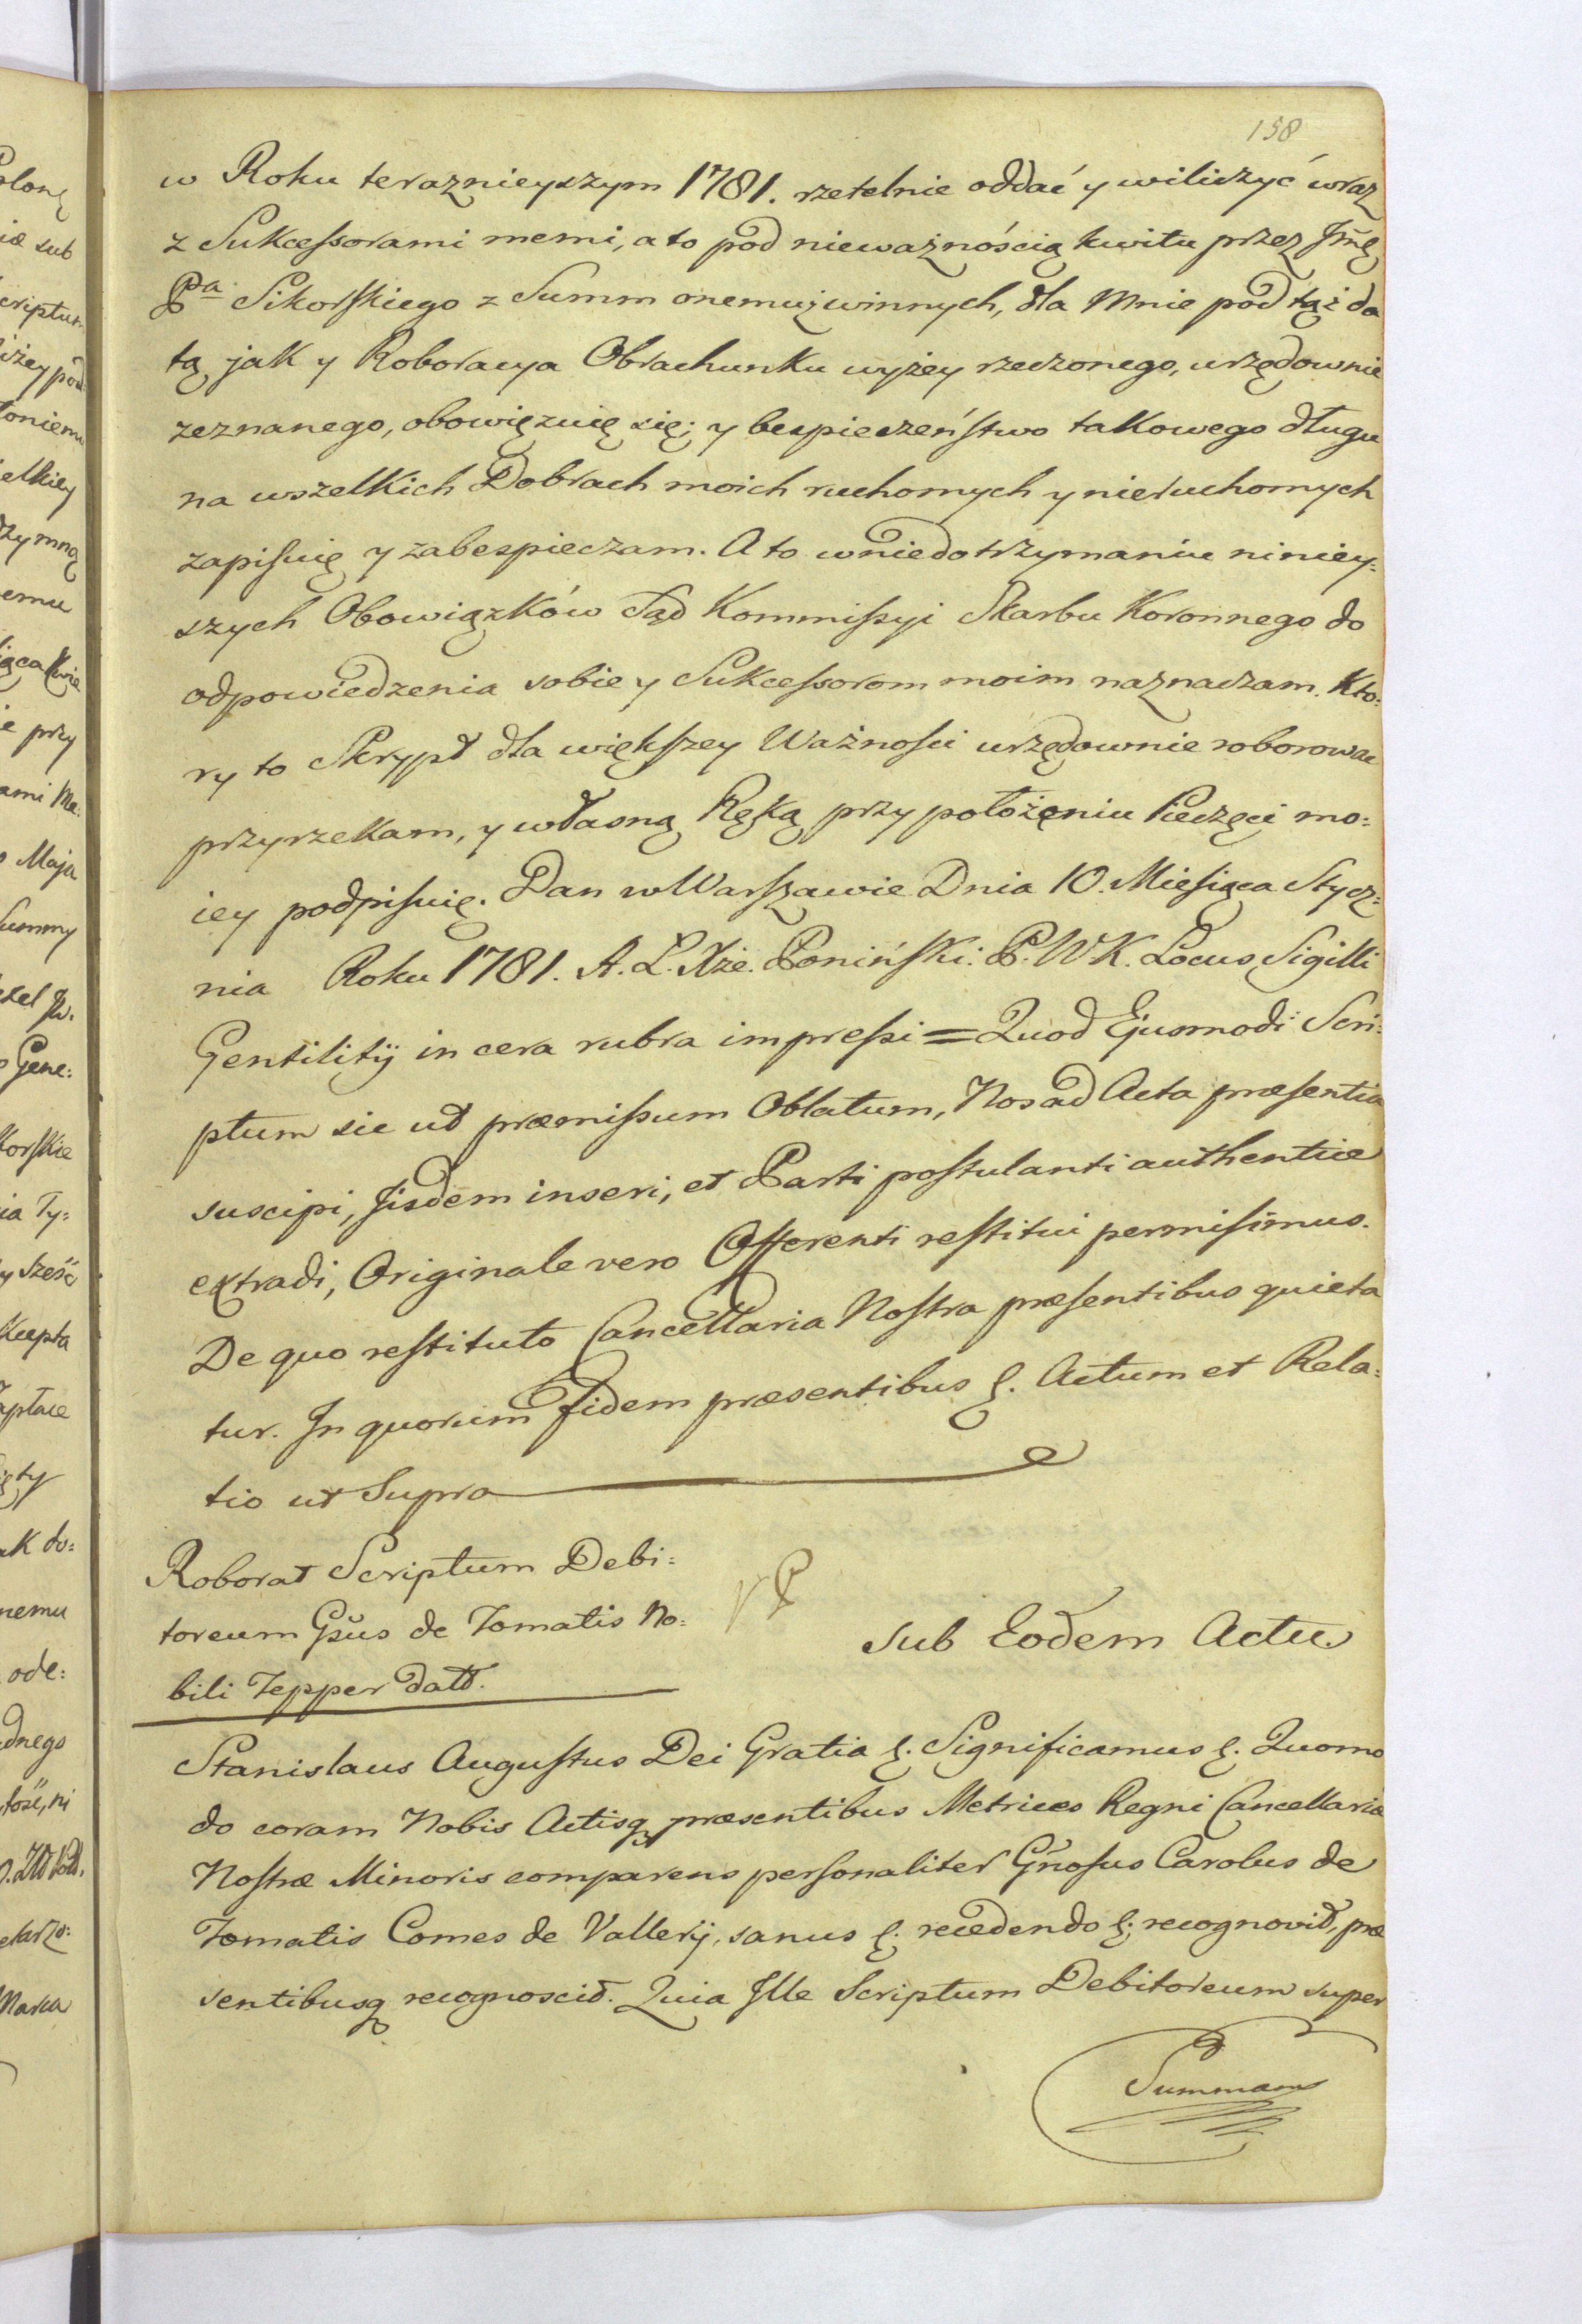 158
w Roku teraznieyszym 1781. rzetelnie oddać y wiliczyć wraz
z Sukcessorami memi, a to pod nieważnością kwitu przez Jmę
Pa Sikorskiego z Summ onemuż winnych, dla Mnie pod tąż da
tą jak y Roboracya Obrachunku wyżey rzeczonego, urzędownie
zeznanego, obowięzuię się; y bespieczeństwo takowego długu
na wszelkich Dobrach moich ruchomych y nieruchomych
zapisuię y zabespieczam. A to w niedotrzymaniu niniey=
szych Obowiązków Sąd Kommissyi Skarbu Koronnego do
odpowiedzenia sobie y Sukcessorom moim naznaczam. Kto=
ry to Skrypt dla większey Ważności urzędownie roborowac
przyrzekam, y własną Ręką przy położęniu Pieczęci mo=
iey podpisuię. Dan w Warszawie Dnia 10. Miesiąca Stycz=
nia Roku 1781. A. L. Xże. Poniński. P. W K. Locus Sigilli
Gentilitij in cera rubra impressi = Quod Ejusmodi Scri=
ptum sic ut præmissum Oblatum, Nos ad Acta præsentia
suscipi, Jisdem inseri, et Parti postulanti authentice
extradi, Originale vero Offerenti restitui permisimus.
De quo restituto Cancellaria Nostra præsentibus quieta
tur. In quorum fidem præsentibus &. Actum et Rela=
tio ut Supra
Roborat Scriptum Debi=
toreum Gsus de Tomatis No=
bili Tepper datt.
sub Eodem Actu.
Stanislaus Augustus Dei Gratia &. Significamus &. Quomo
do coram Nobis Actisq præsentibus Metrices Regni Cancellariæ
Nostræ Minoris comparens personaliter Gnosus Carolus de
Tomatis Comes de Vallerij, sanus &. recedendo &. recognovit, præ
sentibusq recognoscit. Quia Ille Scriptum Debitoreum super
Summam